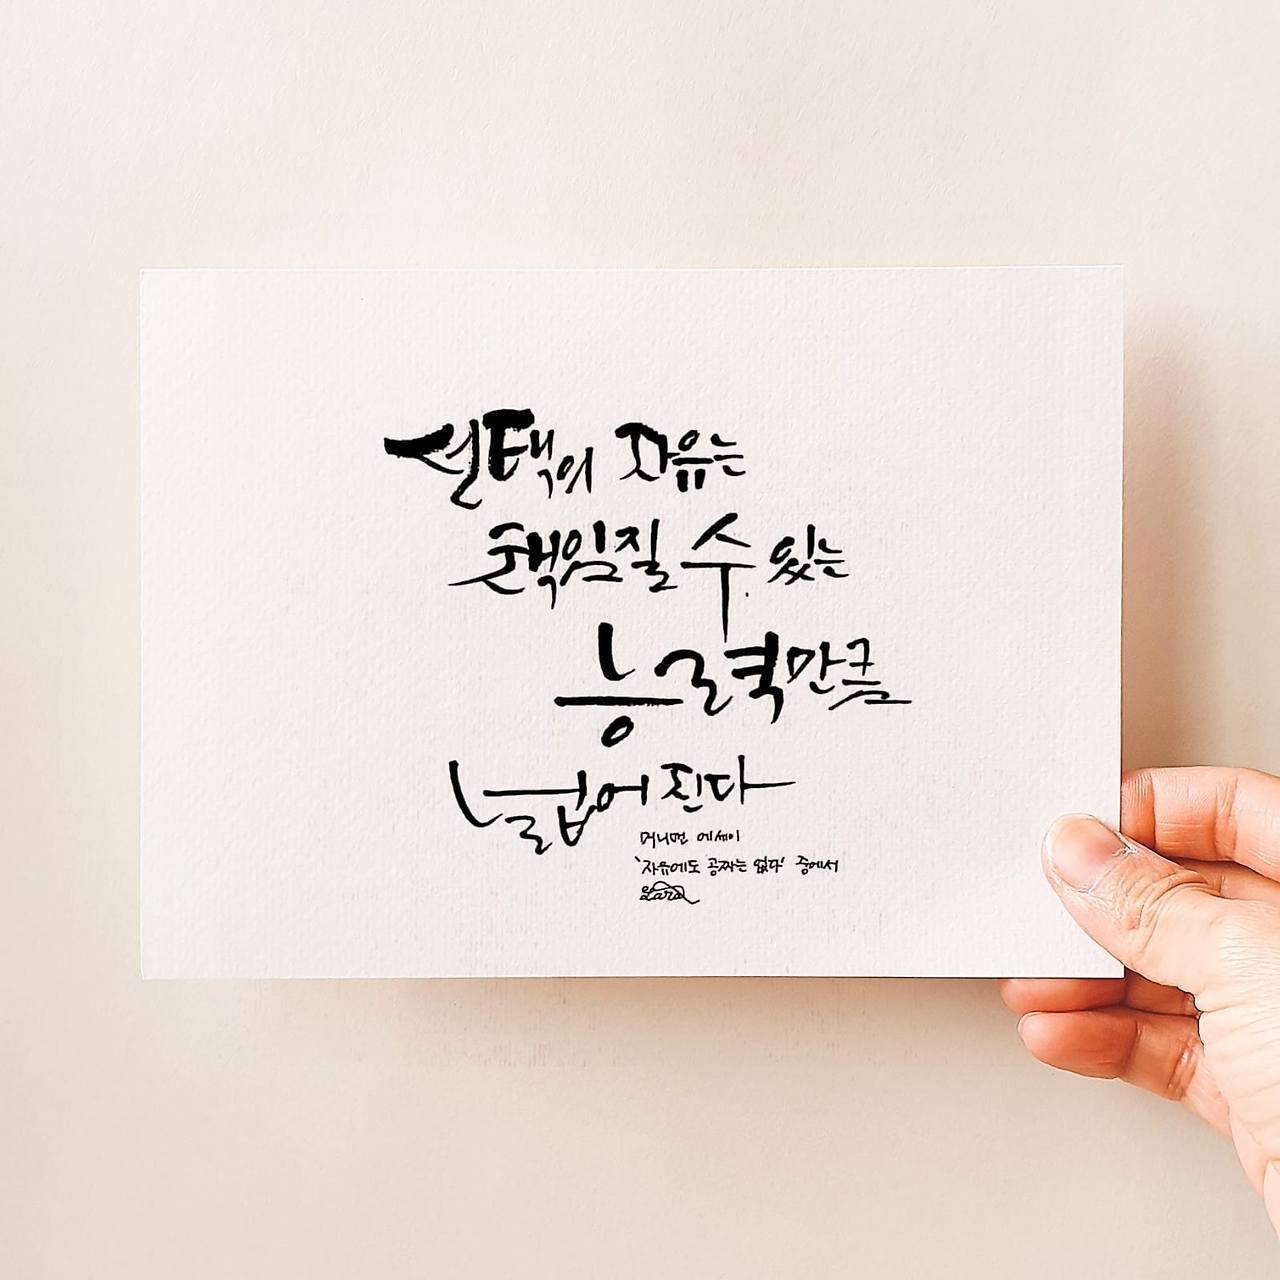 선택의 자유는
책임질 수 있는
능력만큼
넓어진다
머니먼 에세이
'자유에도 공짜는 없다' 중에서
Lara